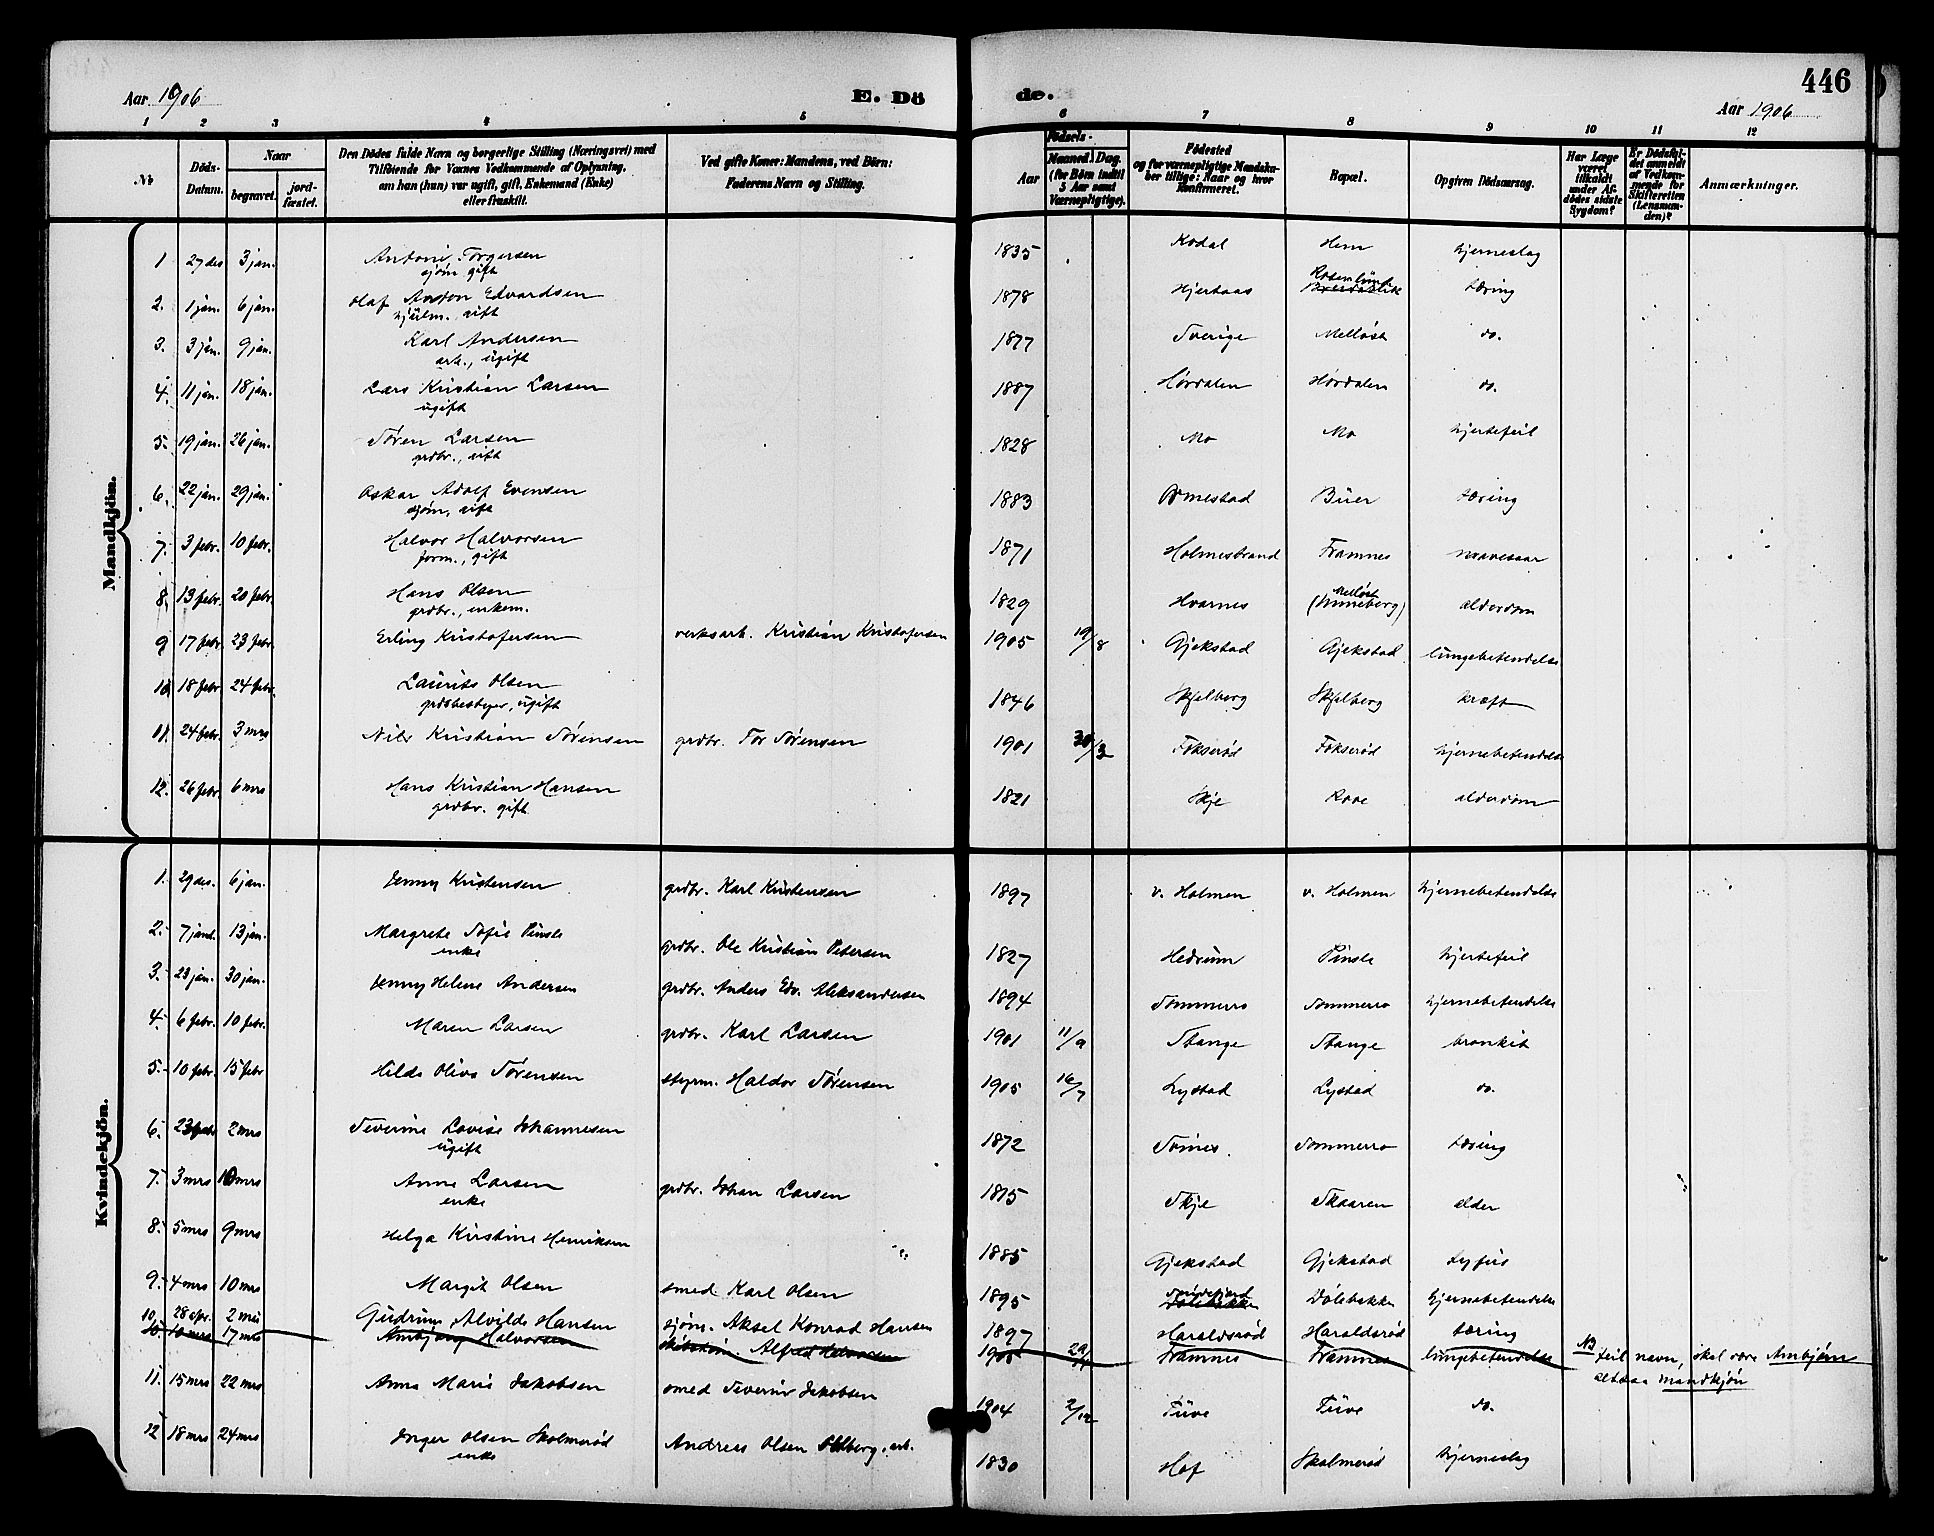 446
Aar 1906 E. Dö de. Aar 1906
1 2 3 4 5 6 7 8 9 10 11 12
No
Döds-Datum.
Naar
begravet.
jord-fæstet.
Den Dödes fulde Navn og borgerlige Stilling (Næringsvei) med
Tilföiende for Voxnes Vedkommende af Oplysning,
om han (hun) var ugift, gift, Enkemand (Enke)
eller fraskilt.
Ved gifte Koner: Mandens, ved Börn:
Faderens Navn og Stilling.
Födsels-
Aar
Maaned. Dag.
(for Börn indtil
5 Aar samt
Værnepligtige).
Födested
og for værnepligtige Mandska-
ber tillige: Naar og hvor
konfirmeret.
Bopæl.
Opgiven Dödsaarsag.
Har Læge
været
tilkaldt
under Af-
dödes sidste
Sygdom?
Er Dödsfal-
det anmeldt
af Vedkom-
mende for
Skifteretten
(Lensman-
den)?
Anmærkninger.
Mandkjön.
1 27 des 3 jan. Antoni Torgersen 1835 Kodal Hem hjerneslag
sjøm. gift
2. 1 jan. 6 jan. Olaf Anton Edvardsen 1878 Hjertaas Rosenlund tæring
gift
3. 3 jan. 9 jan. Karl Andersen 1877 Sverige Melløst do.
arb., ugift
4. 11 jan. 18 jan. Lars Kristian Larsen 1887 Hørdalen Hørdalen do.
ugift
5. 19 jan. 26 jan. Søren Larsen 1828 Mo Mo hjertefeil
grdbr., gift
6. 22 jan. 29 jan. Oskar Adolf Evensen 1883 Ormestad Buer tæring
sjøm, gift
7. 3 febr. 10 febr. Halvor Halvorsen 1871 Holmestrand Framnes mavesaar
form., gift
8. 13 febr. 20 febr. Hans Olsen 1829 Hvarnes Melløst (Unneberg) alderdom
grdbr., enkem.
9 17 febr. 23 febr. Erling Kristofersen verksarb. Kristian Kristofersen 1905 19/8 Gjekstad Gjekstad lungebetendelse
10 18 febr. 24 febr. Laurits Olsen 1846 Skjelberg Skjelberg kræft
grdsbestyer, ugift
11. 24 febr. 3 mrs Nils Kristian Sørensen grdbr. Tor Sørensen 1901 30/3 Fokserød Fokserød hjernebetendelse
12. 26 febr. 6 mrs Hans Kristian Hansen 1821 Skje Rove alderdom
grdbr. gift
Kvindekjön.
1. 29 des. 6 jan. Jenny Kristensen grdbr. Karl Kristensen 1897 v. Holmen v. Holmen hjernebetendelse
2. 7 jan. 13 jan. Margrete Sofie Pinsle grdbr. Ole Kristian Petersen 1827 Hedrum Pinsle hjertefeil
enke
3. 23 jan. 30 jan. Jenny Helene Andersen grdbr. Anders Edv. Aleksandersen 1894 Sommerro Sommerro hjernebetendelse
4. 6 febr. 10 febr. Maren Larsen grdbr. Karl Larsen 1901 11/9 Stange Stange bronkit
5. 10 febr. 15 febr Hilda Oliva Sørensen styrm. Haldor Sørensen 1905 16/7 Lystad Lystad do.
6. 23 febr 2 mrs Severine Lovise Johannesen 1872 Sommerro tæring
ugift
7. 3 mrs 10 mrs Anne Larsen grdbr. Johan Larsen 1815 Skje Skaaren alder
enke
8. 5 mrs 9 mrs Helga Kristine Henriksen 1885 Gjekstad Gjekstad tyfus
9. 4 mrs 10 mrs Margit Olsen smed Karl Olsen 1895 Sandefjord Dølebakken Dølebakken hjernebetendelse
10. 28 apr. 2 mai Gudrun Alvilde Hansen sjøm. Aksel Konrad Hansen 1897 Haraldsrød Haraldsrød tæring
10 10 mrs 17 mrs Ambjørg Halvorsen Alfred Halvorsen Framnes Framnes lungebetendelse NB feil navn, skal være Ambjørn
altsaa mandkjøn
11. 15 mrs 22 mrs Anna Marie Jakobsen smed Severin Jakobsen 1904 2/12 Tuve Tuve do.
12 18 mrs 24 mrs Inger Olsen Skolmerød Andreas Olsen arb. 1830 Hof Skolmerød hjerneslag
enke